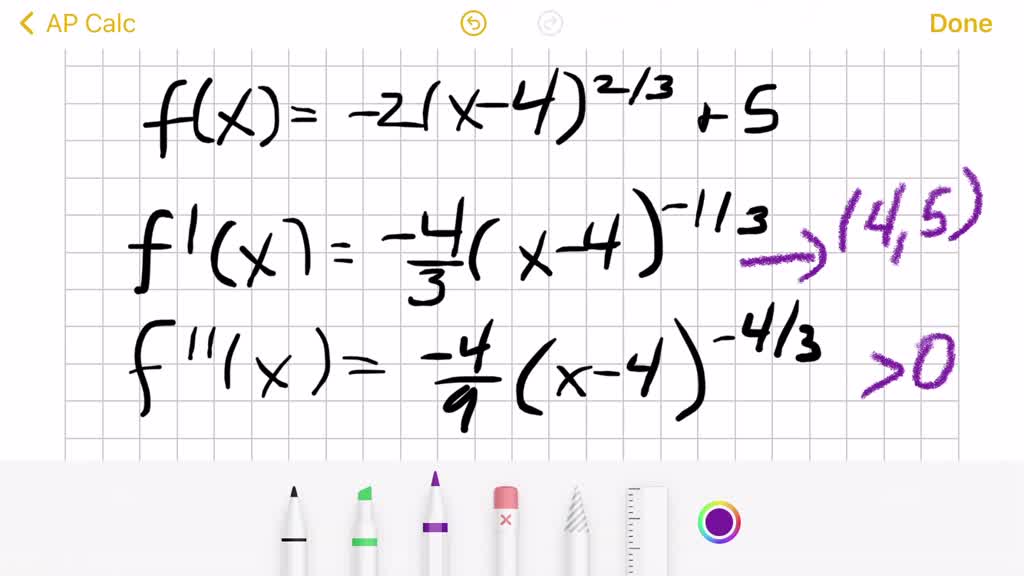 AP Calc Done
f(x) = -2(x-4)^2/3 + 5
f'(x) = -4/3 (x-4)^-1/3 → (4,5)
f''(x) = -4/9 (x-4)^-4/3 >0